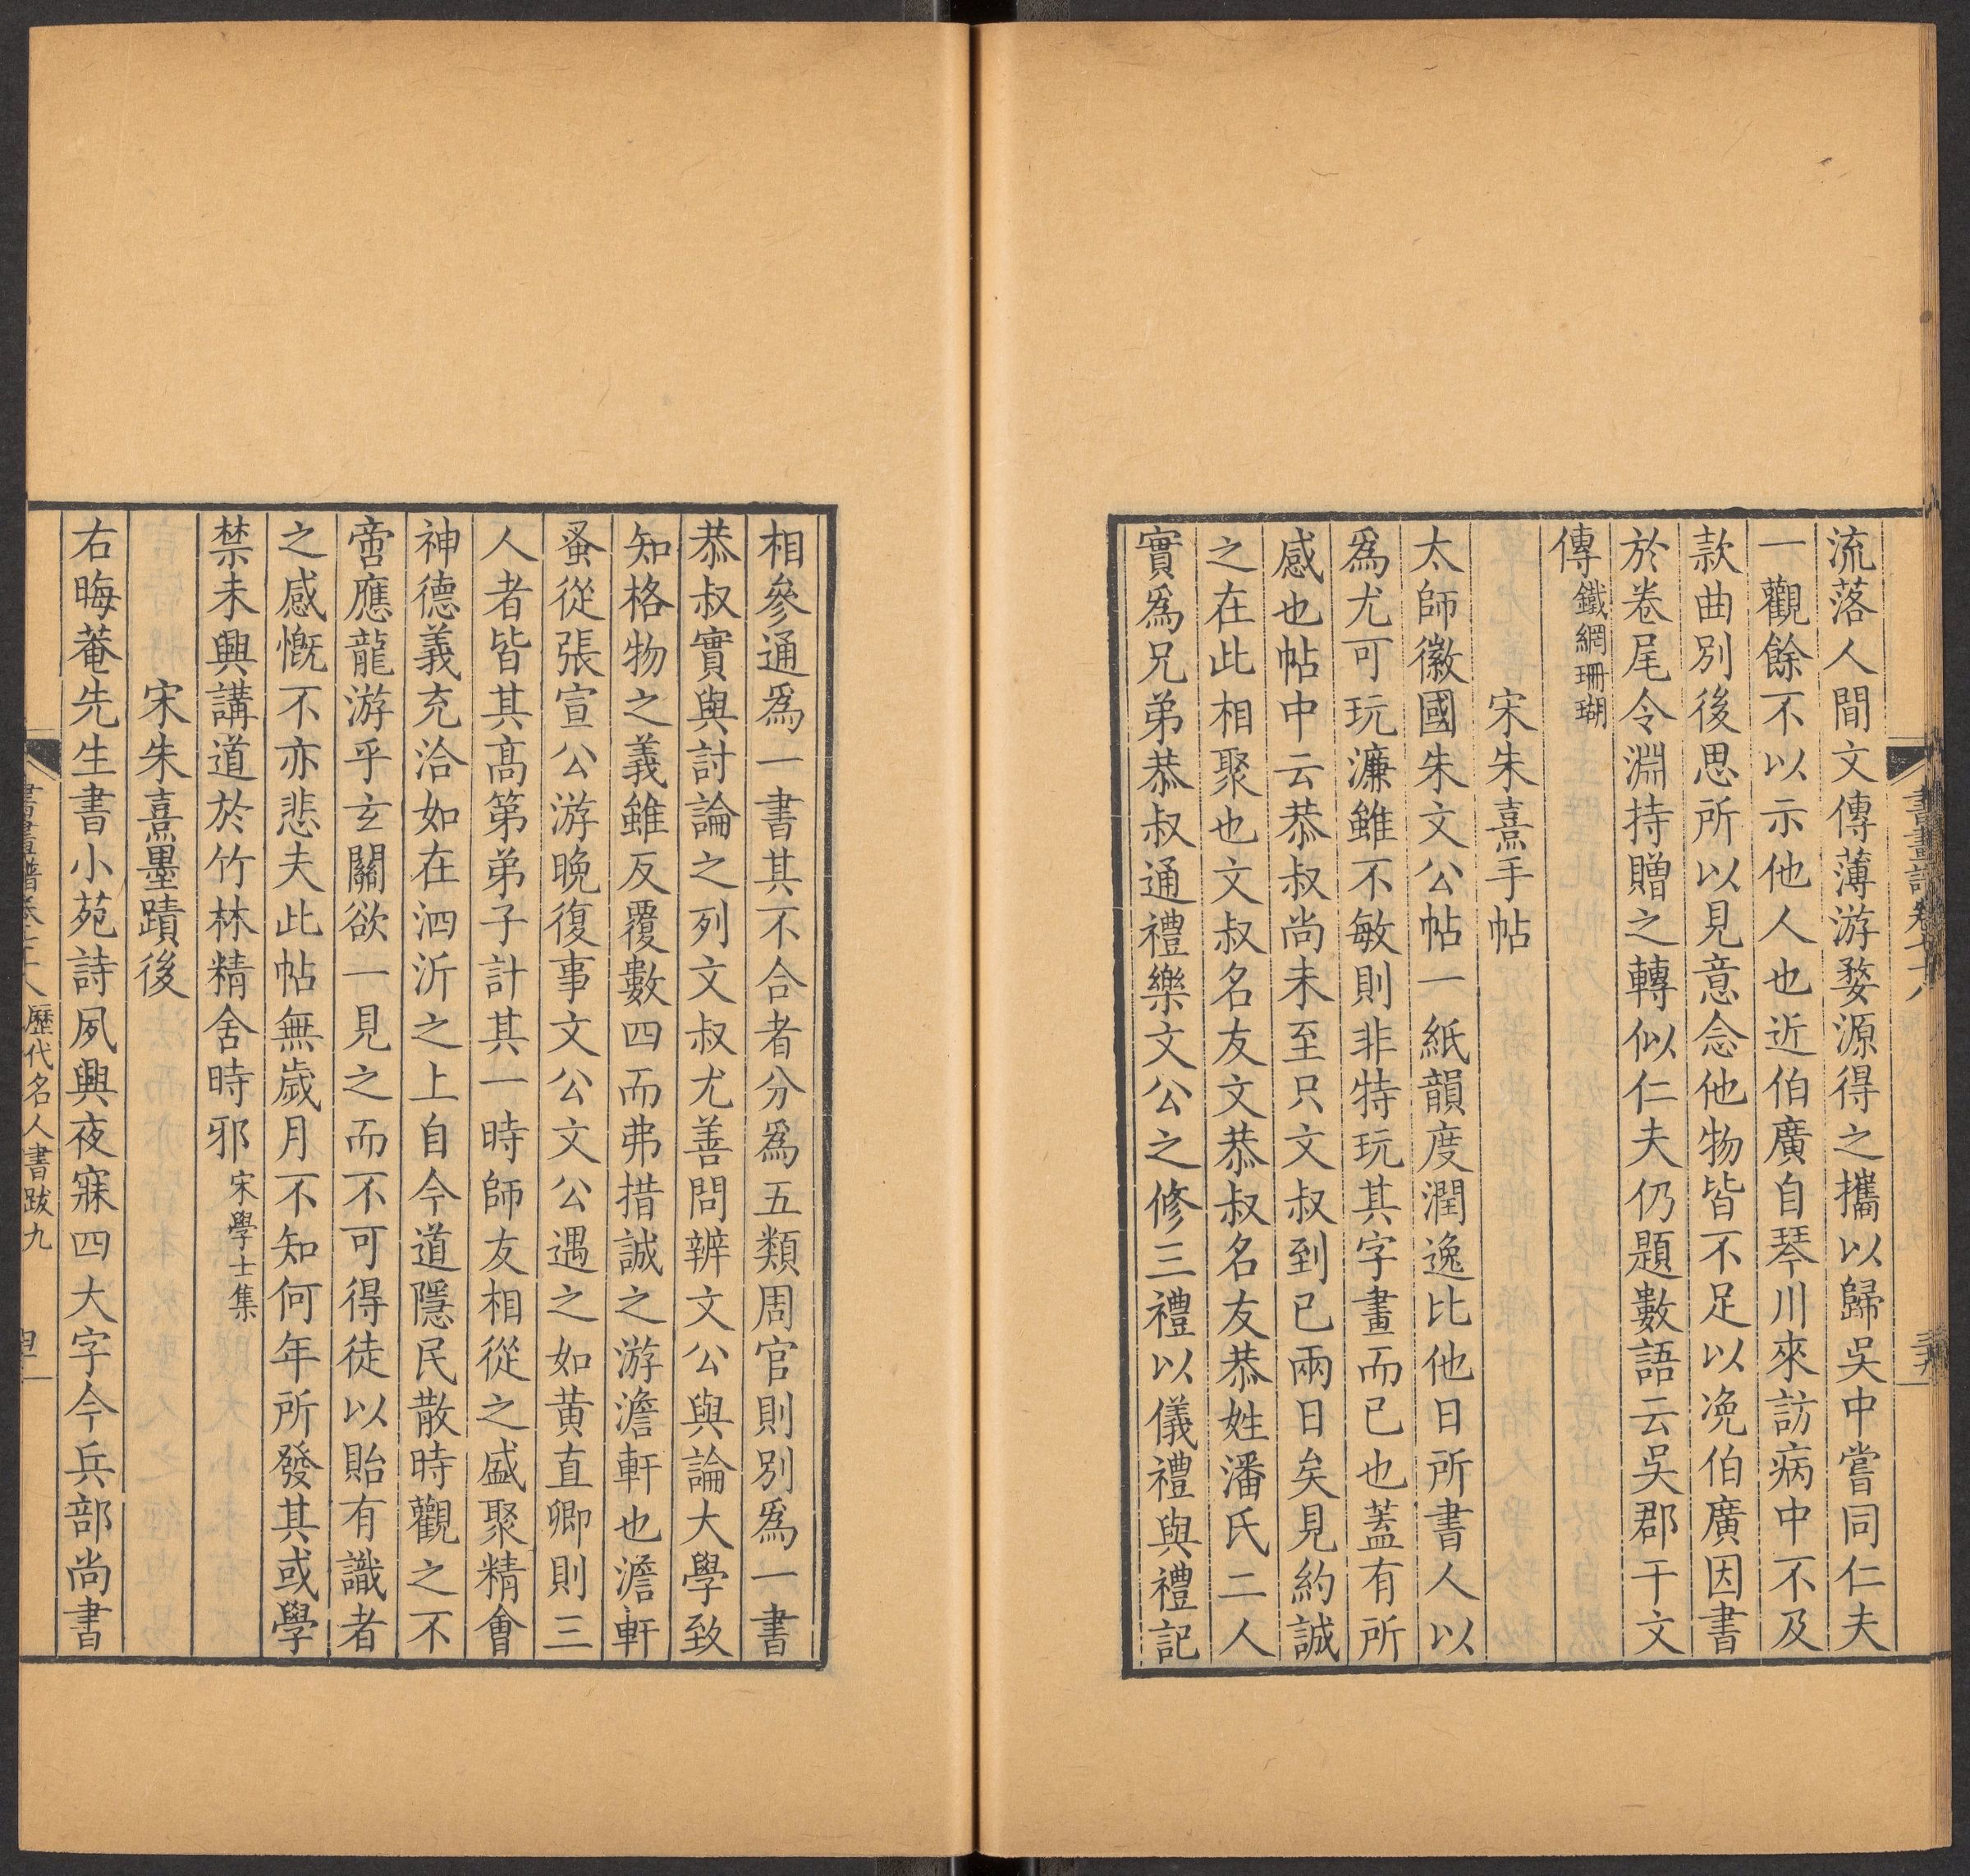 流落人間文傳薄游婺源得之攜以歸吳中嘗同仁夫
一觀餘不以示他人也近伯廣自琴川來訪病中不及
款曲別後思所以見意念他物皆不足以凂伯廣因書
於卷尾令淵持贈之轉似仁夫仍題數語云吳郡干文
傳鐵網珊瑚
宋朱熹手帖
太師徽國朱文公帖一紙韻度潤逸比他日所書人以
爲尤可玩濂雖不敏則非特玩其字畫而已也蓋有所
感也帖中云恭叔尚未至只文叔到已兩日矣見約誠
之在此相聚也文叔名友文恭叔名友恭姓潘氏二人
實爲兄弟恭叔通禮樂文公之修三禮以儀禮與禮記
相參通爲一書其不合者分爲五類周官則別爲一書
恭叔實與討論之列文叔尤善問辨文公與論大學致
知格物之義雖反覆數四而弗措誠之游澹軒也澹軒
蚤從張宣公游晚復事文公文公遇之如黃直卿則三
人者皆其高第弟子計其一時師友相從之盛聚精會
神德義充洽如在泗沂之上自今道隱民散時觀之不
啻應龍游乎玄關欲一見之而不可得徒以貽有識者
之感慨不亦悲夫此帖無歲月不知何年所發其或學
禁未興講道於竹林精舍時邪宋學士集
宋朱熹墨蹟後
右晦菴先生書小苑詩夙興夜寐四大字今兵部尚書
書畫譜卷七十八 歷代名人書跋九